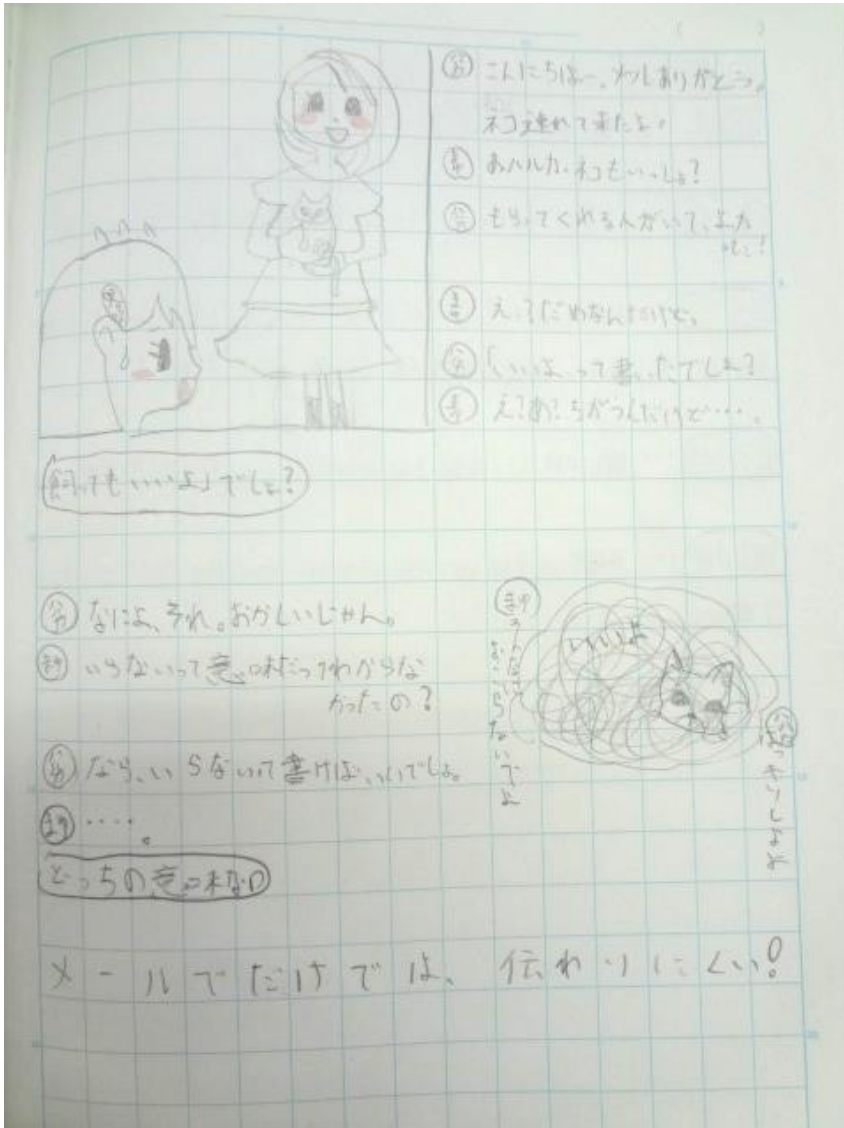 こんにちはー。メールありがとう。
ネコ連れて来たよ。
あハルカ、ネコもいっしょ?
もらってくれる人がいて、よか
った!
え、?だめなんだけど、
「いいよって書いたでしょ?
え?あ?ちがうんだけど‥‥。
飼ってもいいよ」でしょ?
なによ、それ。おかしいじゃん。
いらないって意味だってわからな
かったの?
なら、いらないって書けば、いいでしょ。
‥‥。
どっちの意味なの
いいよ
そんなに
おこらないでよ
はっきりしてよ
メールでだけでは、伝わりにくい!